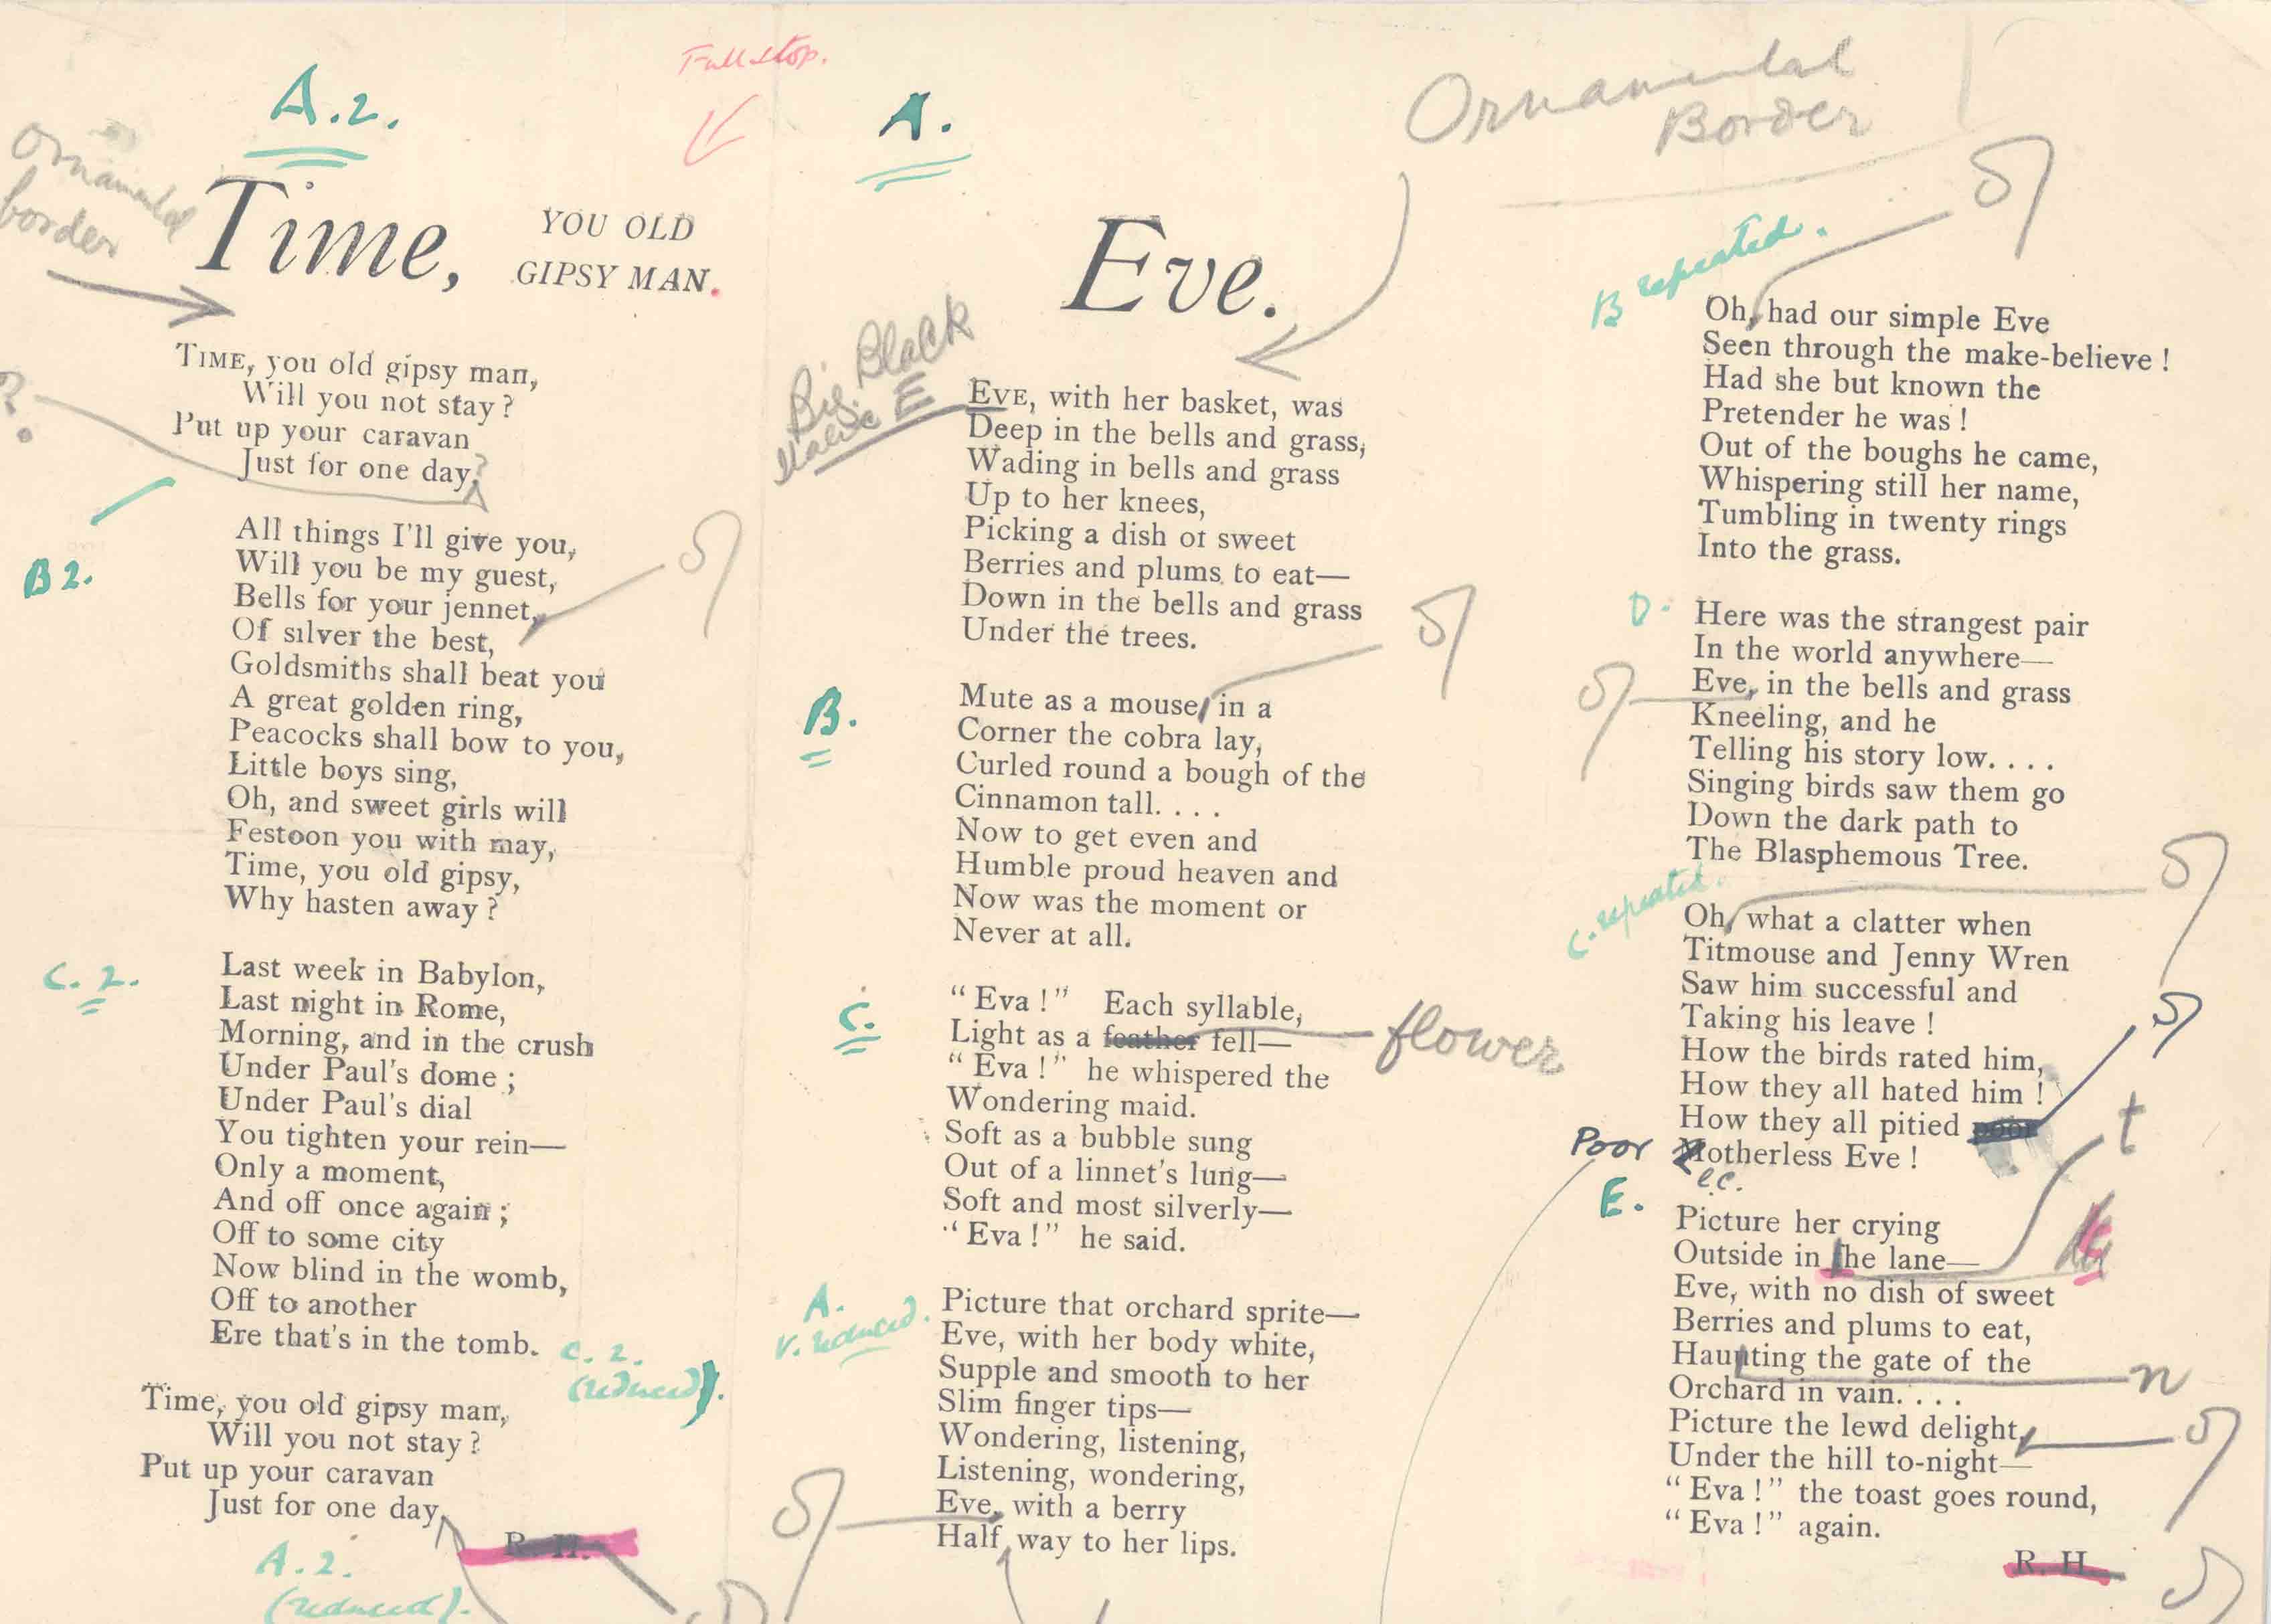 A.2.
Full stop.
Ornamental
border
Time,
YOU OLD
GIPSY MAN.
TIME, you old gipsy man,
Will you not stay?
Put up your caravan
Just for one day?
?
B2.
All things I'll give you,
Will you be my guest,
Bells for your jennet,
Of silver the best,
Goldsmiths shall beat you
A great golden ring,
Peacocks shall bow to you,
Little boys sing,
Oh, and sweet girls will
Festoon you with may,
Time, you old gipsy,
Why hasten away?
C. 2.
Last week in Babylon,
Last night in Rome,
Morning, and in the crush
Under Paul's dome;
Under Paul's dial
You tighten your rein—
Only a moment,
And off once again;
Off to some city
Now blind in the womb,
Off to another
Ere that's in the tomb.
C. 2.
(reduced).
Time, you old gipsy man,
Will you not stay?
Put up your caravan
Just for one day
R. H.
A.2.
(reduced).
A.
Ornamental
Border
Eve.
Big Black
E
EVE, with her basket, was
Deep in the bells and grass,
Wading in bells and grass
Up to her knees,
Picking a dish of sweet
Berries and plums to eat—
Down in the bells and grass
Under the trees.
B.
Mute as a mouse, in a
Corner the cobra lay,
Curled round a bough of the
Cinnamon tall. . . .
Now to get even and
Humble proud heaven and
Now was the moment or
Never at all.
C.
"Eva!" Each syllable,
Light as a feather fell—
flower
"Eva!" he whispered the
Wondering maid.
Soft as a bubble sung
Out of a linnet's lung—
Soft and most silverly—
"Eva!" he said.
A.
v. reduced.
Picture that orchard sprite—
Eve, with her body white,
Supple and smooth to her
Slim finger tips—
Wondering, listening,
Listening, wondering,
Eve, with a berry
Half way to her lips.
B repeated.
Oh, had our simple Eve
Seen through the make-believe!
Had she but known the
Pretender he was!
Out of the boughs he came,
Whispering still her name,
Tumbling in twenty rings
Into the grass.
D.
Here was the strangest pair
In the world anywhere—
Eve, in the bells and grass
Kneeling, and he
Telling his story low. . . .
Singing birds saw them go
Down the dark path to
The Blasphemous Tree.
C. repeated.
Oh, what a clatter when
Titmouse and Jenny Wren
Saw him successful and
Taking his leave!
How the birds rated him,
How they all hated him!
How they all pitied poor
Poor Motherless Eve!
l.c.
t
E.
Picture her crying
Outside in the lane—
Eve, with no dish of sweet
Berries and plums to eat,
Haunting the gate of the
n
Orchard in vain. . . .
Picture the lewd delight,
Under the hill to-night—
"Eva!" the toast goes round,
"Eva!" again.
R. H.